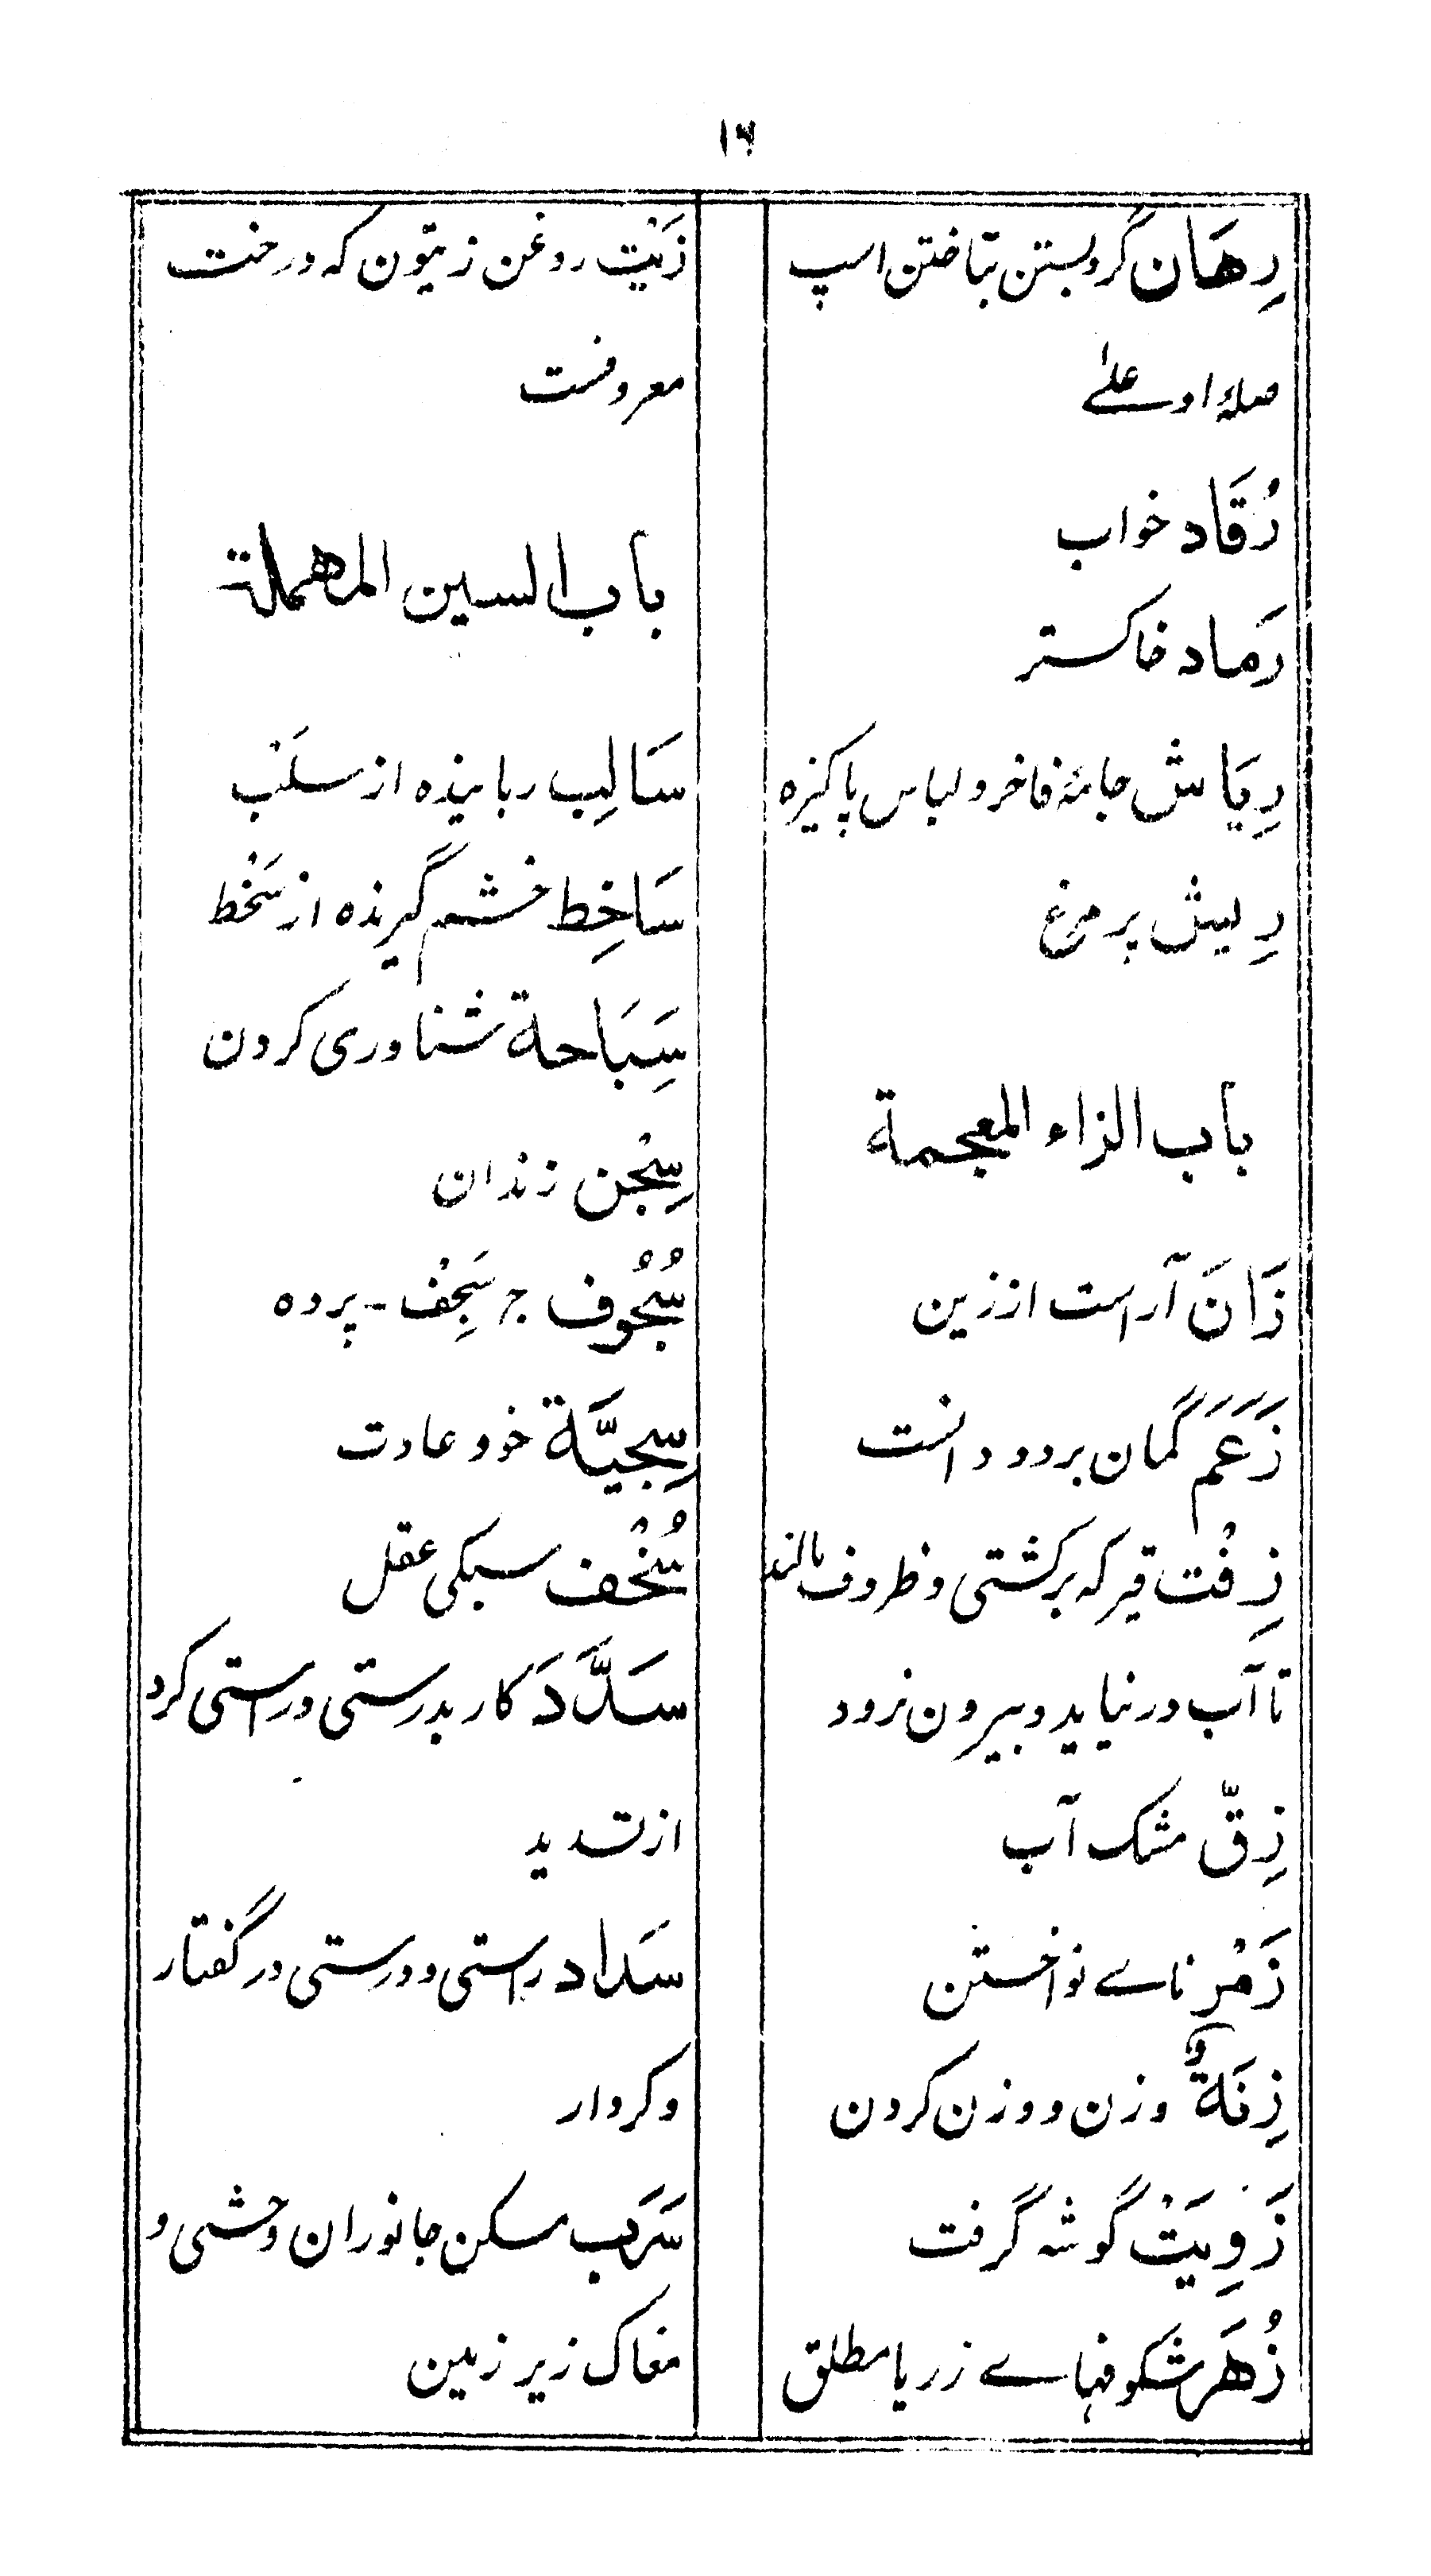 ١٦
رِهَان گرو بستن بتاختن اسپ
صلهٔ او علےٰ
رُقَاد خواب
رَماد خاکستر
رِیَاش جامهٔ فاخر و لباس پاکیزه
رِیش پر مرغ
باب الزاء المعجمة
زَانَ آراست از زین
زَعَمَ گمان برد و دانست
زِفْت قیر که بر کشتی و ظروف مالند
تا آب در نیاید و بیرون نرود
زِقّ مشک آب
زَمْر ناے نواختن
زِنَة وزن و وزن کردن
زَوِیَتْ گوشه گرفت
زُهَر شکوفهاے زرد یا مطلق
زَیْت روغن زیتون که درخت
معروفست
باب السین المهملة
سَالِب رباینده از سَلَب
سَاخِط خشم گیرنده از سَخْط
سِبَاحة شناوری کردن
سِجْن زندان
سُجُوف ج سَجِفْ - پرده
سِجیَّة خو و عادت
سُخْف سبکی عقل
سَدَّدَ کار بدرستی و راستی کرد
از تسدید
سَداد راستی و درستی در گفتار
و کردار
سَرَب مسکن جانوران وحشی و
مغاک زیر زمین